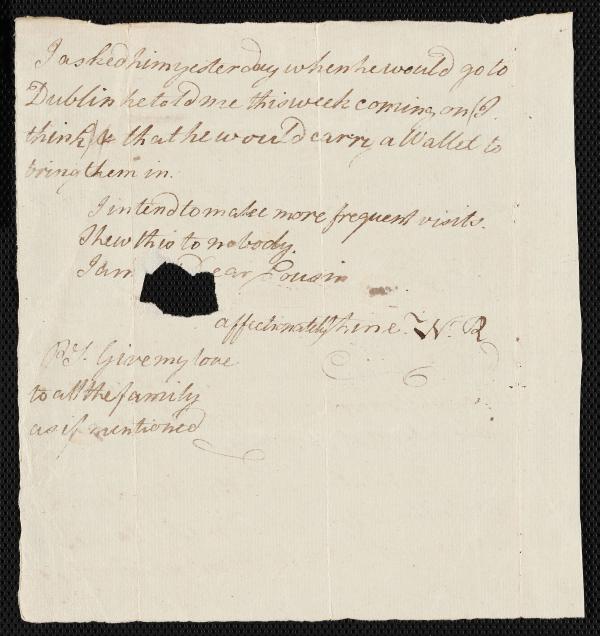 I asked him yesterday when he would go to
Dublin he told me this week coming on (I
think) & that he would carry a Wallet to
bring them in.
I intend to make more frequent visits.
Shew this to nobody.
I am Dear Cousin
affectionately thine W. R
P.S. Give my love
to all the family
as if mentioned